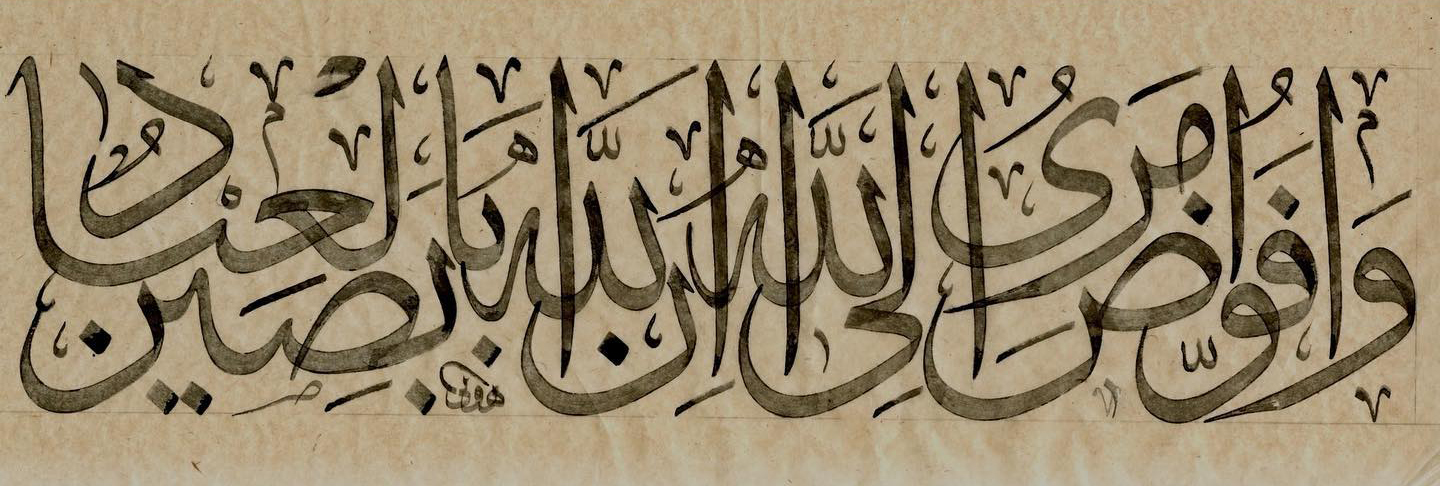 وَاُفَوِّضُ اَمْرِي اِلَى اللّٰهِ اِنَّ اللّٰهَ بَصِيرٌ بِالْعِبَادِ